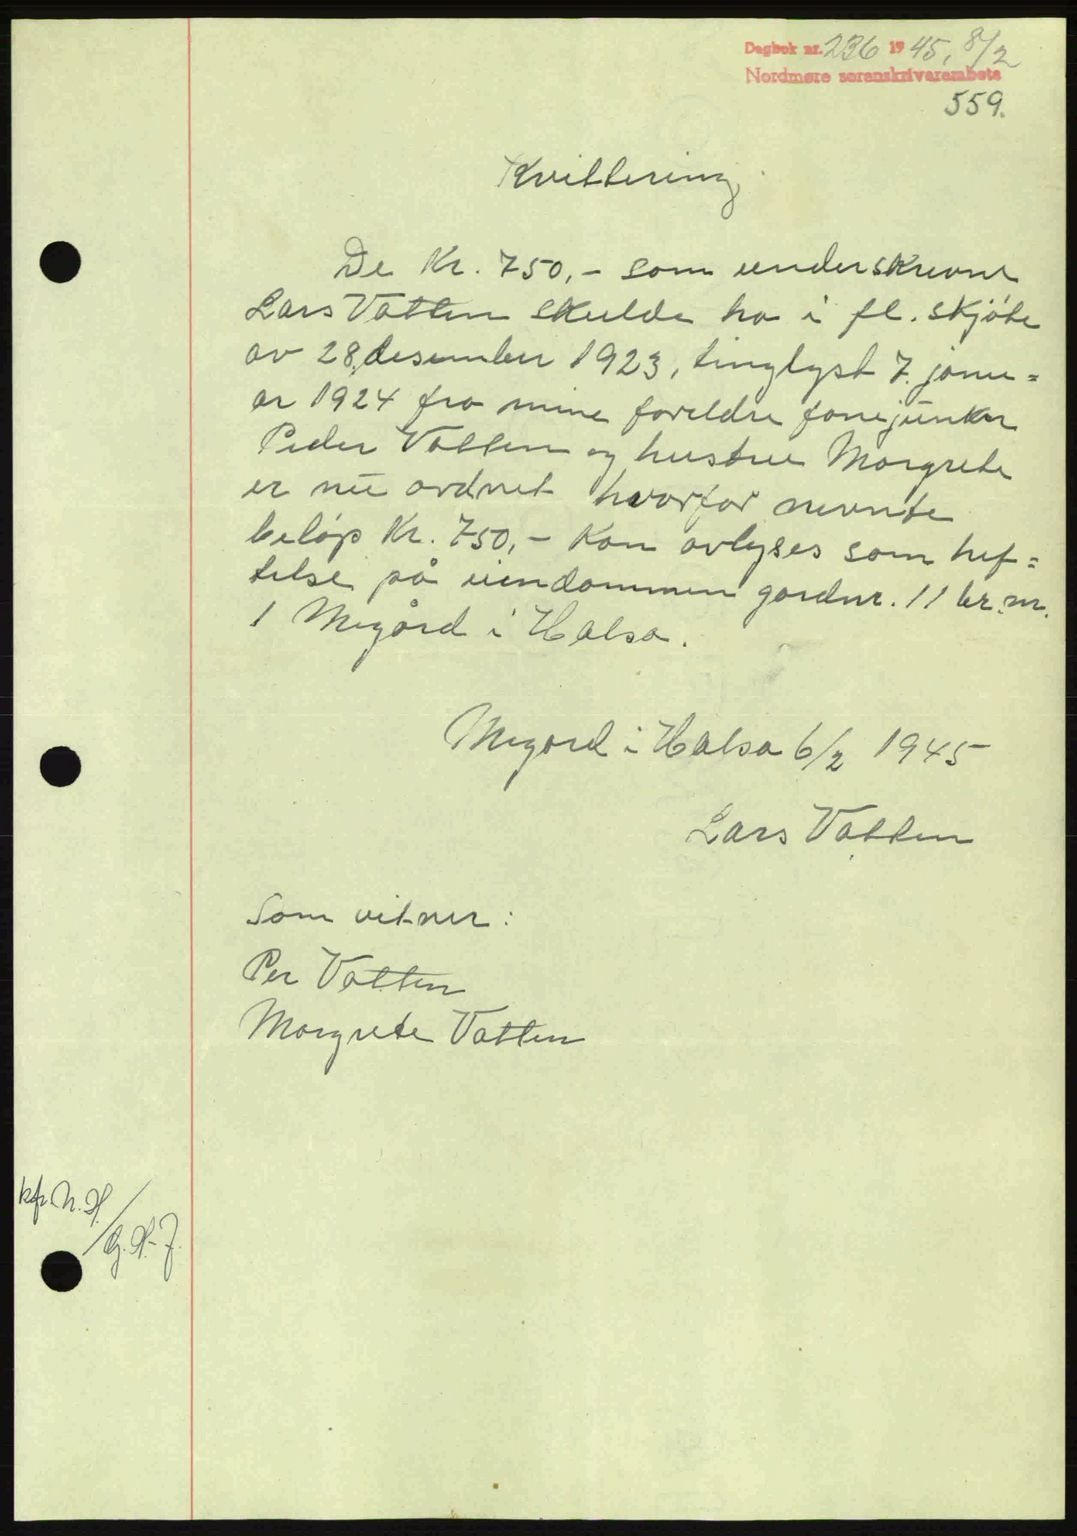 Dagbok nr. 236 1945, 8/2
Nordmøre sorenskrivarembete
559.
Kvittering
De Kr. 750,- som underskrevne
Lars Vatten skulde ha i fl. skjöte
av 28. desember 1923, tinglyst 7. janu=
ar 1924 fra mine foreldre fanejunker
Peder Vatten og hustru Margrete
er nu ordnet hvorfor nevnte
belöp Kr. 750,- kan avlyses som hef=
telse på eiendommen gardnr. 11 br. nr.
1 Megård i Halsa.
Megård i Halsa 6/2 1945
Lars Vatten
Som vitner:
Per Vatten
Margrete Vatten
kfr N. H. / G. H-J.